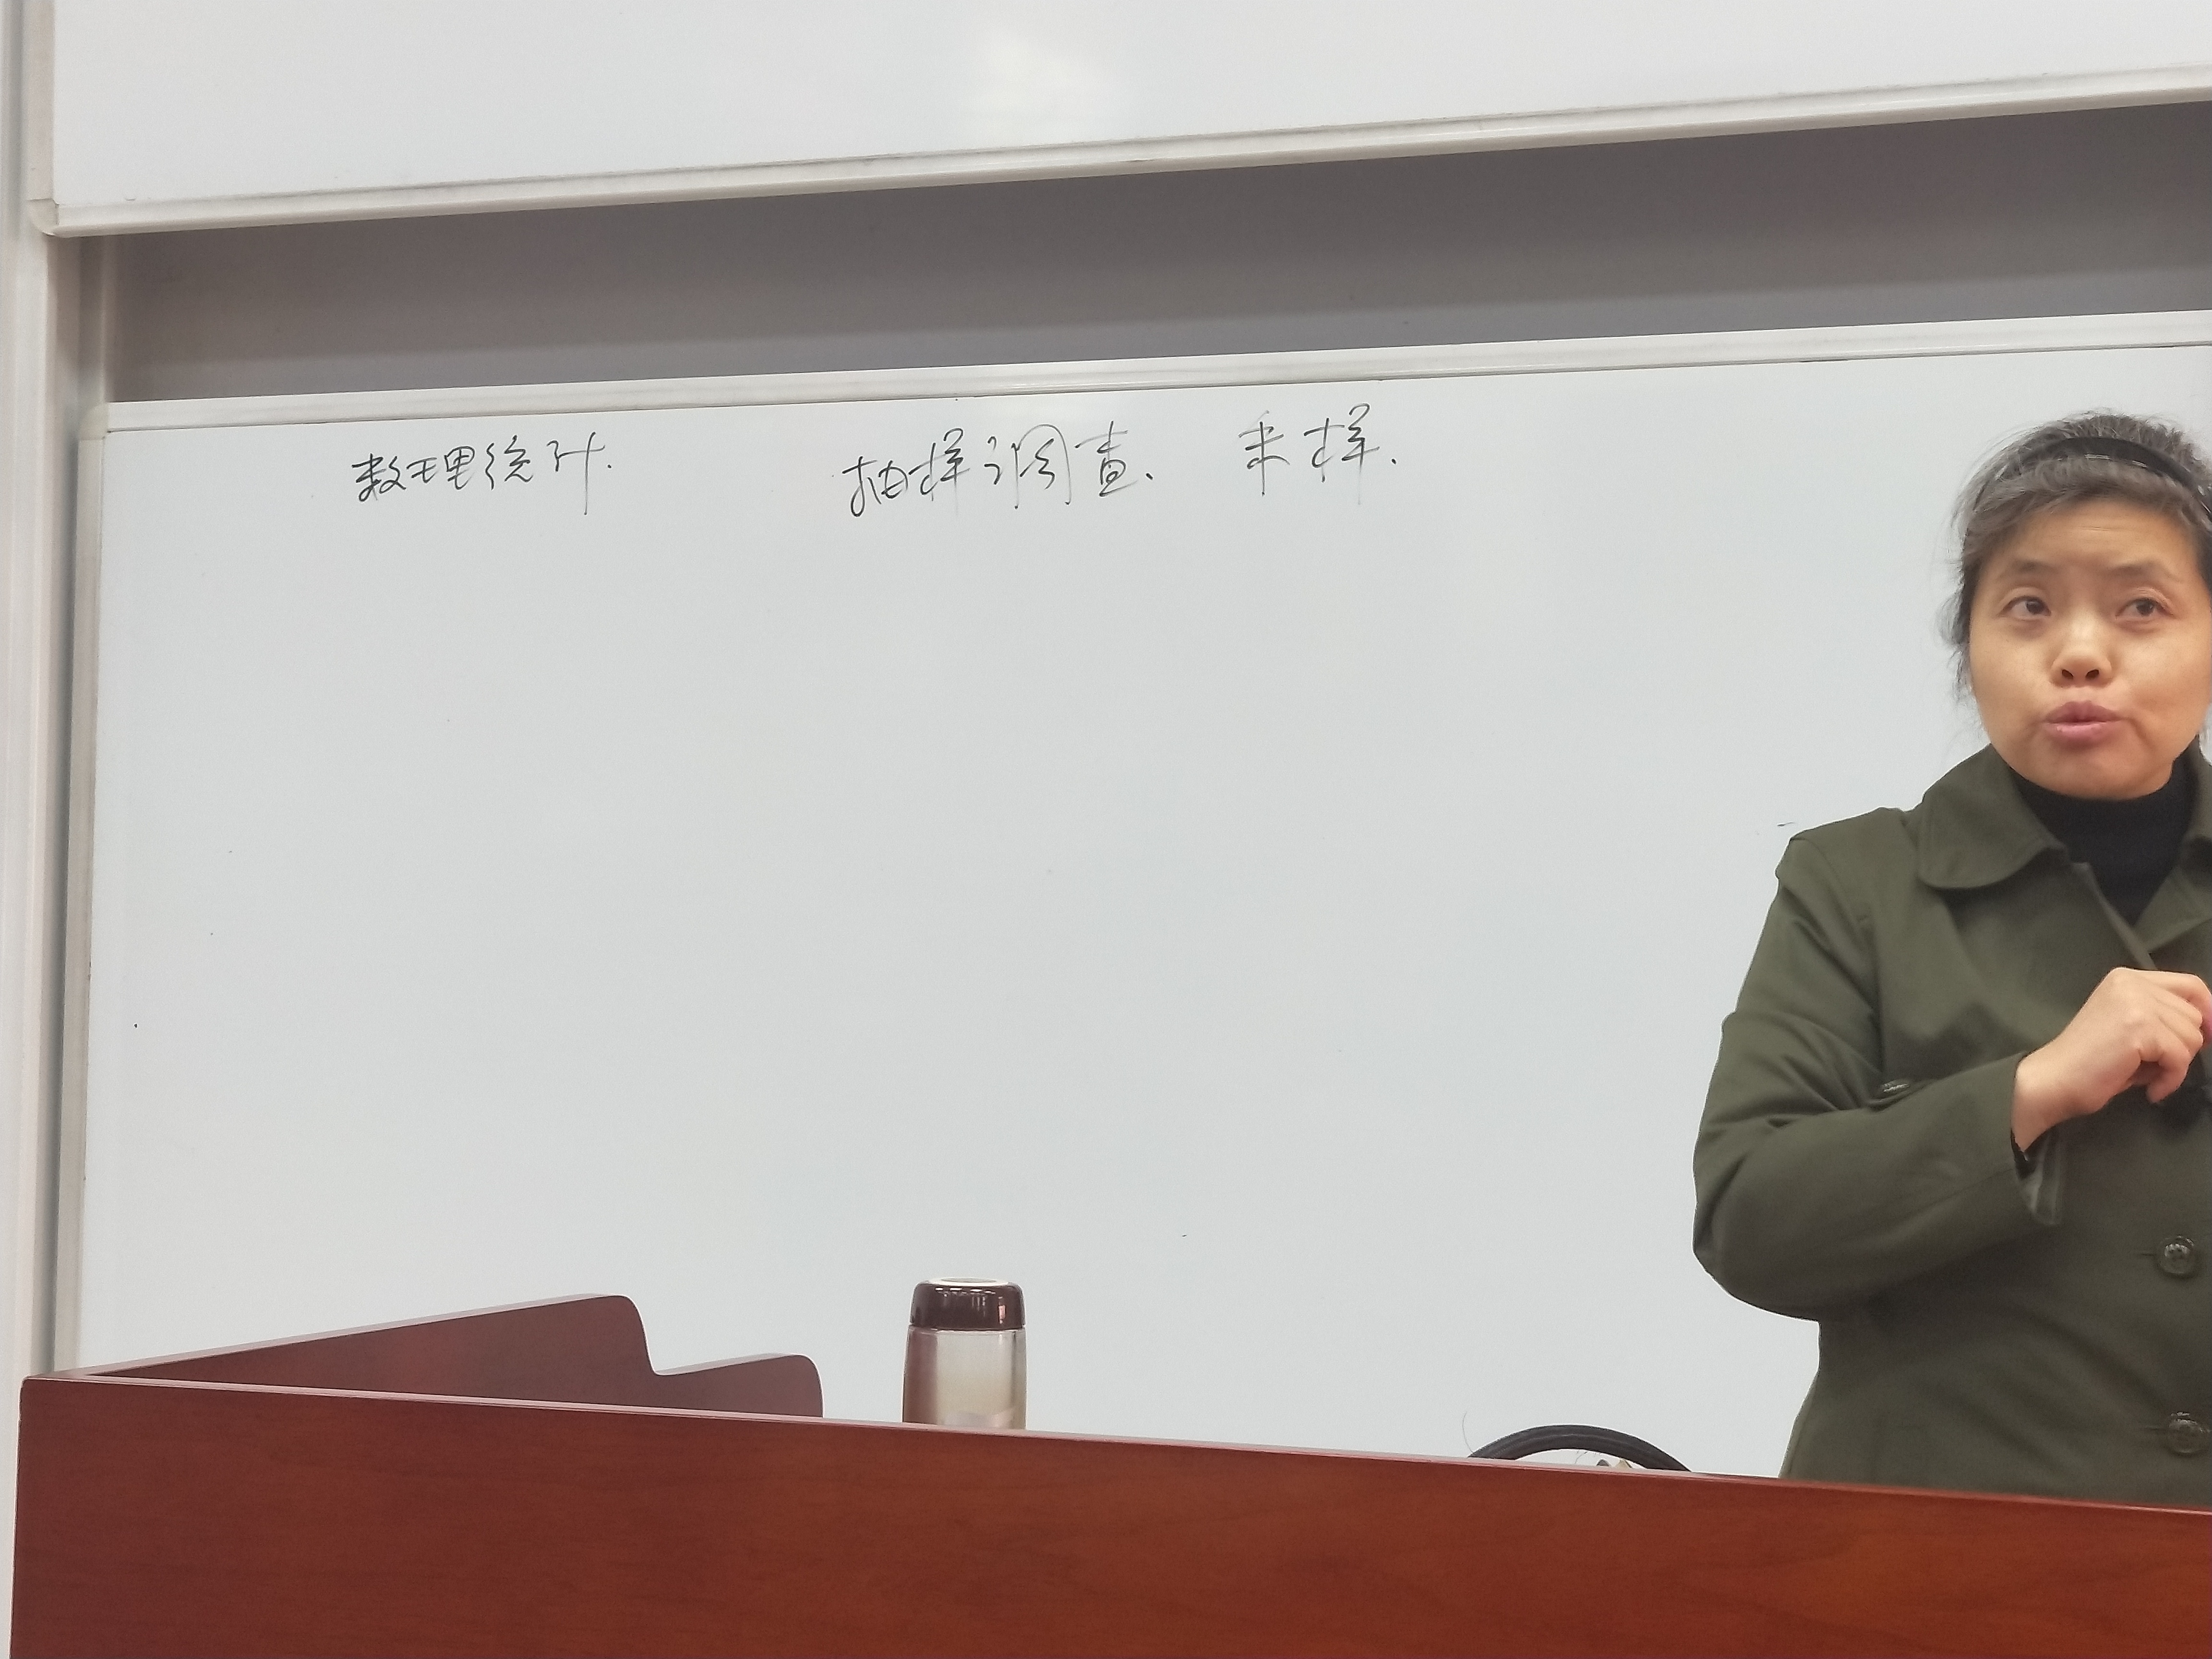 数理统计. 抽样调查、 采样.